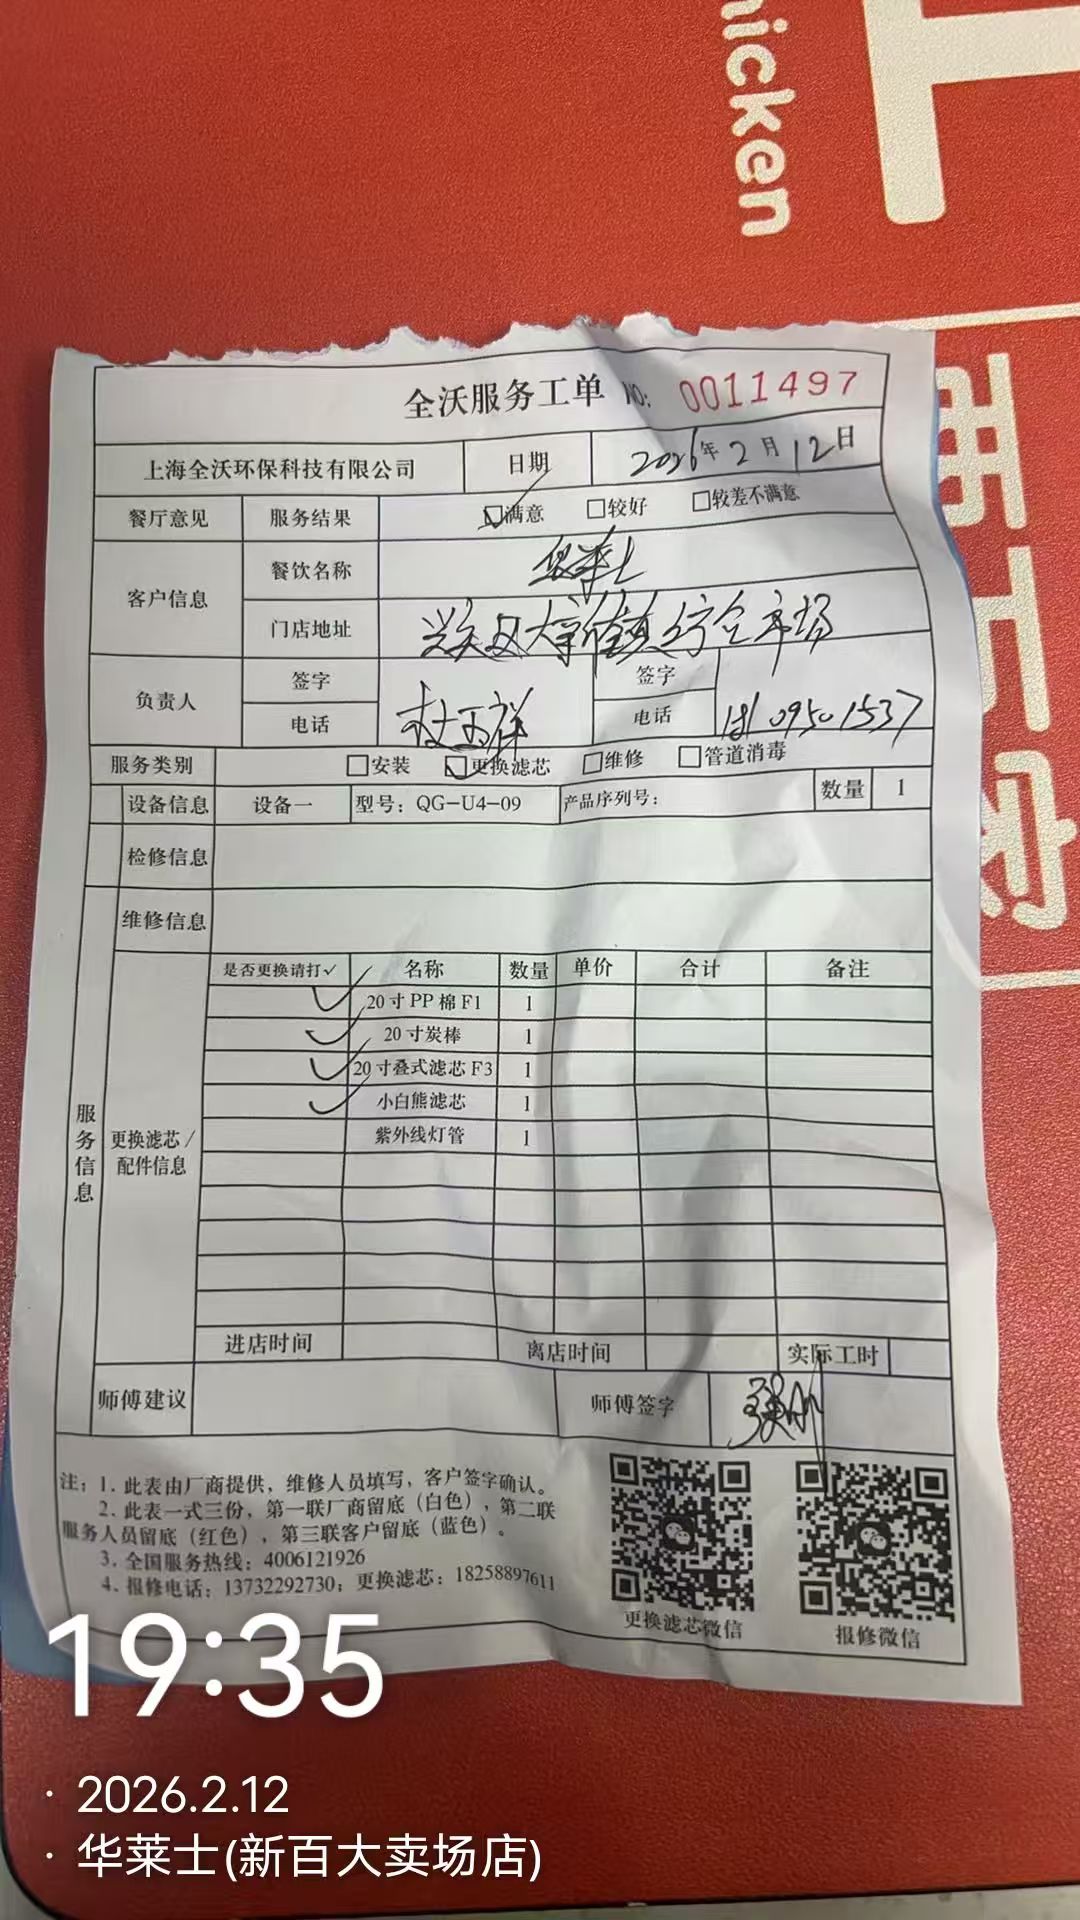 hicken
全沃服务工单 NO: 0011497
上海全沃环保科技有限公司 日期 2026年2月12日
餐厅意见 服务结果 满意 较好 较差不满意
客户信息 餐饮名称 华莱士
门店地址
负责人 签字 签字
电话 电话 18109501537
服务类别 安装 更换滤芯 维修 管道消毒
设备信息 设备一 型号：QG-U4-09 产品序列号： 数量 1
检修信息
维修信息
服务信息
更换滤芯/配件信息
是否更换请打✓ 名称 数量 单价 合计 备注
✓ 20寸PP棉F1 1
✓ 20寸炭棒 1
✓ 20寸叠式滤芯F3 1
✓ 小白熊滤芯 1
紫外线灯管 1
进店时间 离店时间 实际工时
师傅建议 师傅签字
注：1. 此表由厂商提供，维修人员填写，客户签字确认。
2. 此表一式三份，第一联厂商留底（白色），第二联
服务人员留底（红色），第三联客户留底（蓝色）。
3. 全国服务热线：4006121926
4. 报修电话：13732292730；更换滤芯：18258897611
更换滤芯微信 报修微信
19:35
· 2026.2.12
· 华莱士(新百大卖场店)